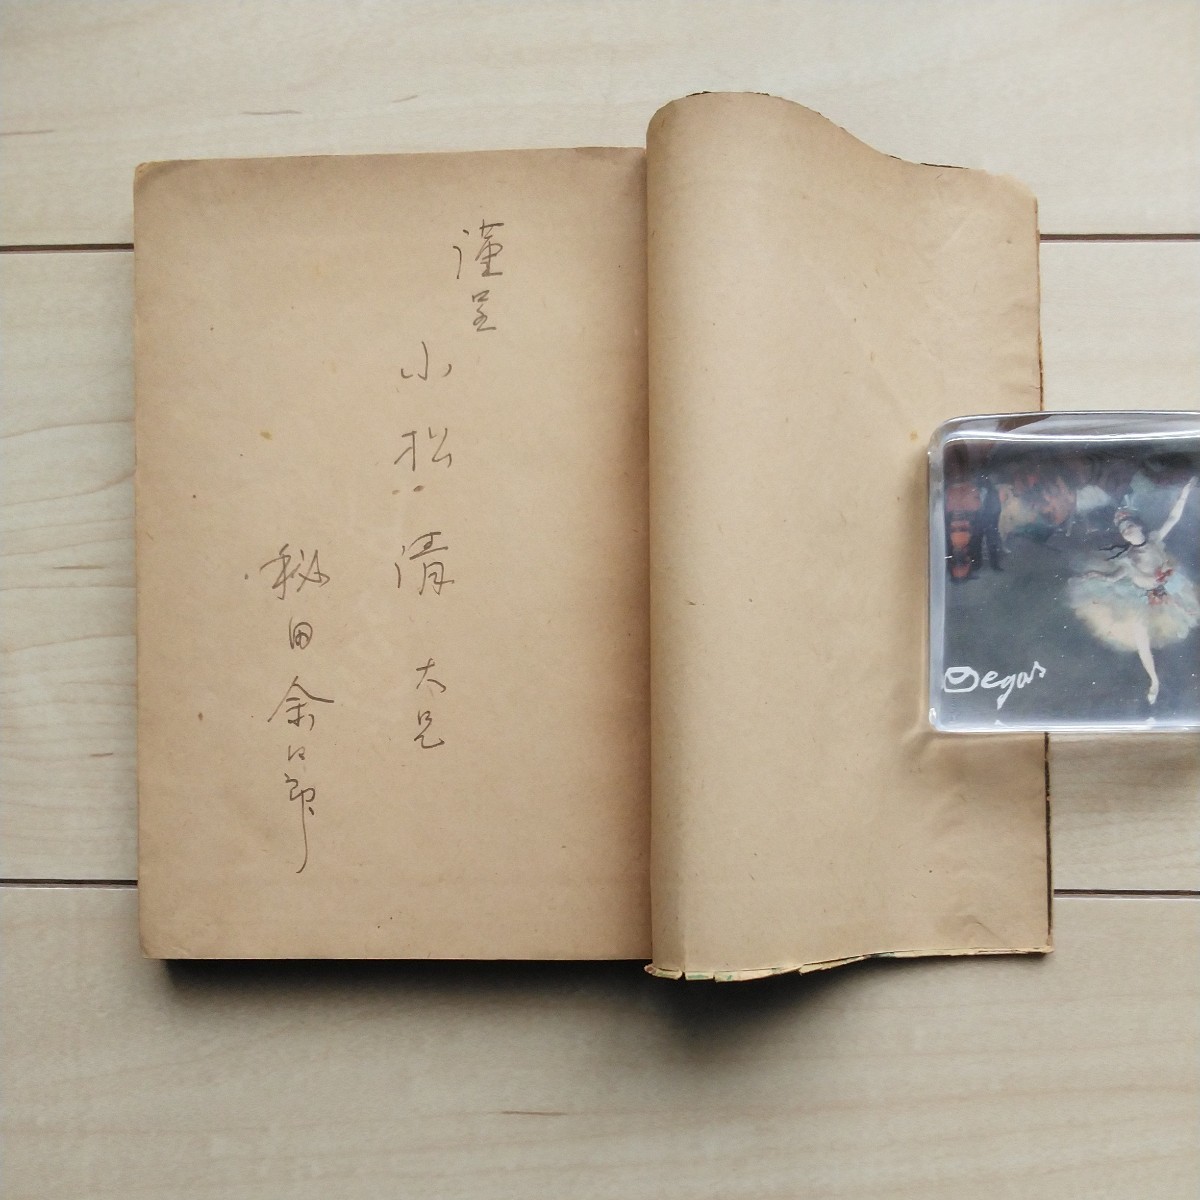 謹呈
小松清 大兄
秘田余四郎
Degas